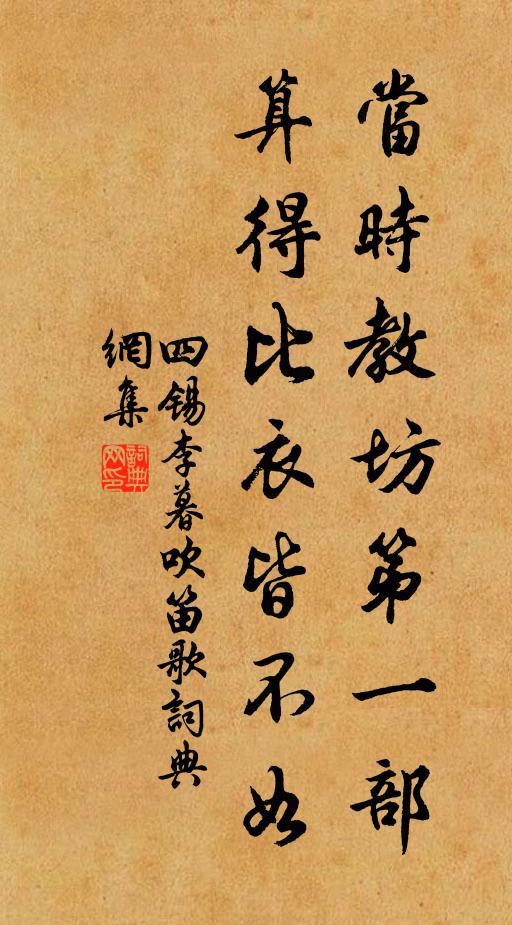 當時教坊第一部
算得比衣皆不如
四錫李暮吹笛歌詞典
網集
詞典
网印